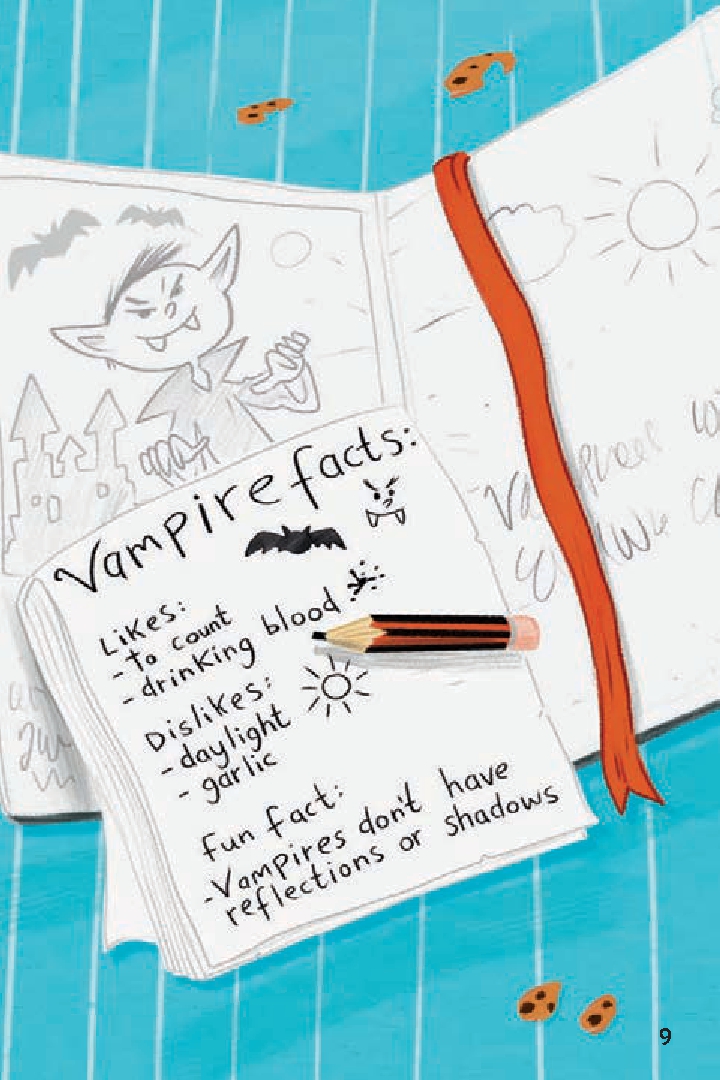 Vampire facts:
Likes:
- to count
- drinking blood
Dislikes:
- daylight
- garlic
fun fact:
- Vampires don't have
reflections or shadows
9